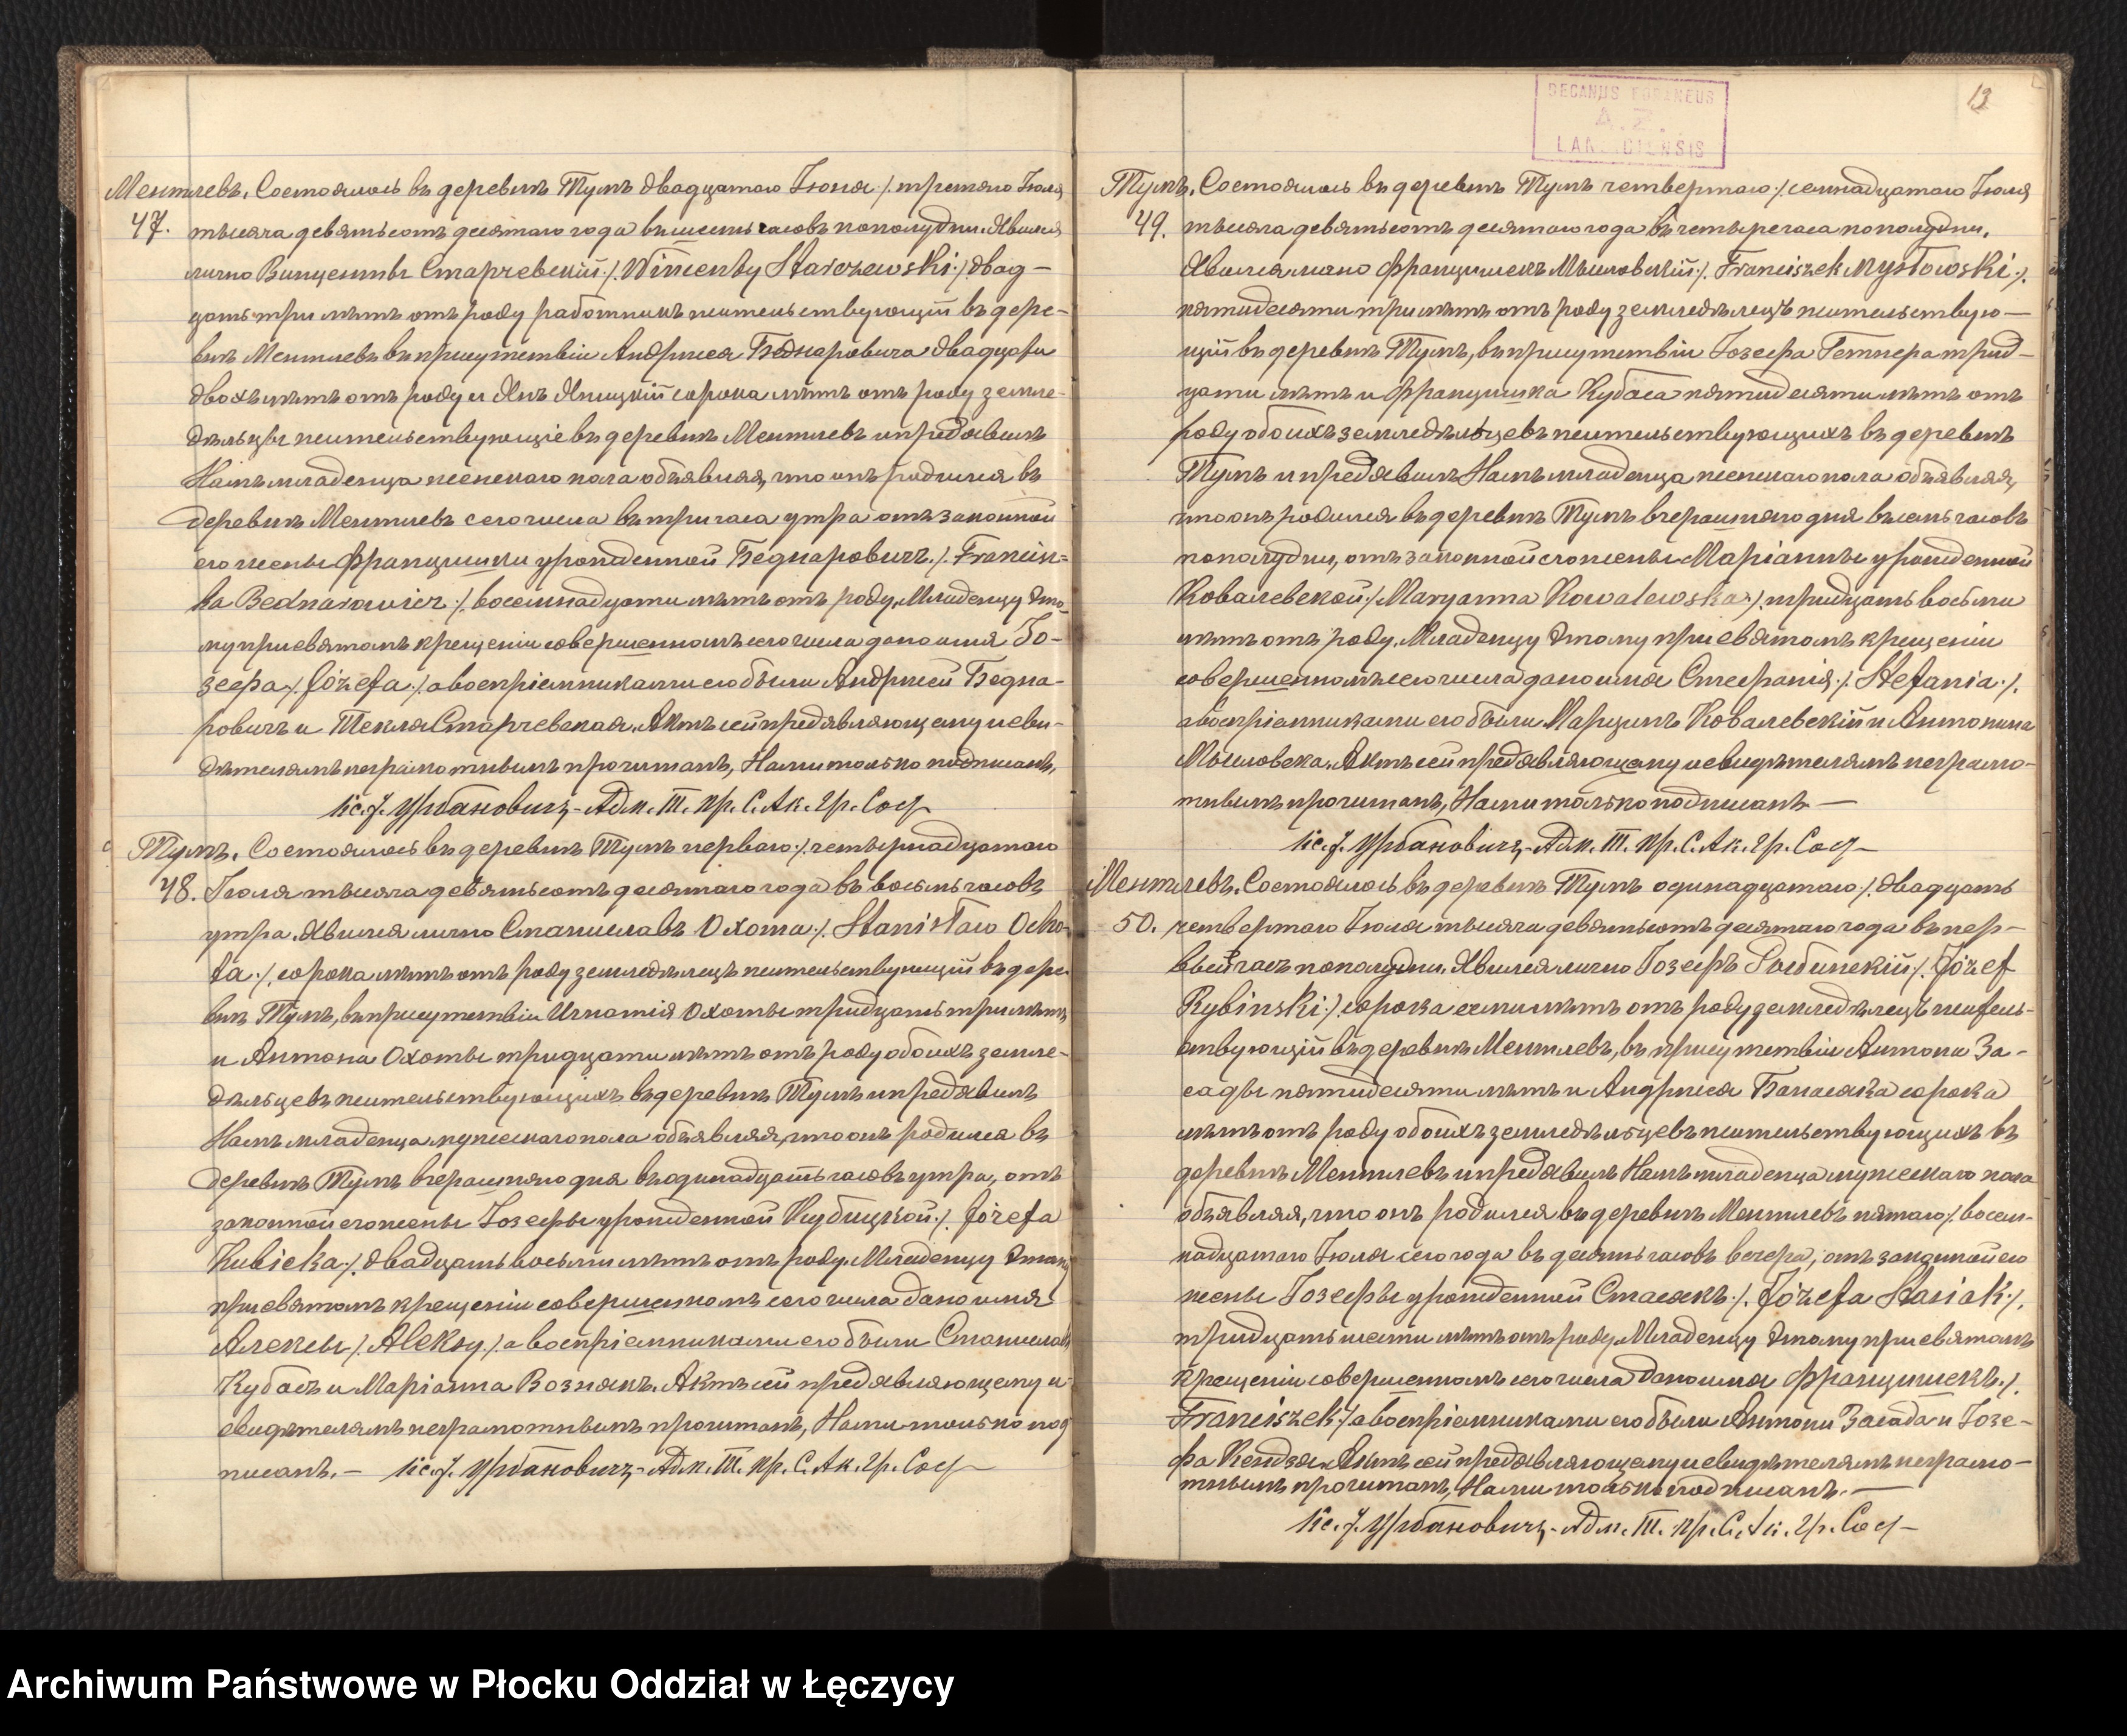 Ментлевъ. Состоялось въ деревнѣ Тумъ двадцатаго Іюня ./. третяго Іюля
47. тысяча девятьсотъ десятаго года въ шесть часовъ пополудни. Явился
лично Винценты Старчевскій ./. Wincenty Starczewski ./. двад-
цать три лѣтъ отъ роду работникъ жительствующій въ дере-
внѣ Ментлевъ въ присутствіи Андржея Беднаровича двадцати
двохъ лѣтъ отъ роду и Янъ Яницкій сорока лѣтъ отъ роду земле-
дѣльцы жительствующіе въ деревнѣ Ментлевъ и предявилъ
Намъ младенца женскаго пола объявляя, что онъ родился въ
деревнѣ Ментлевъ сего числа въ три часа утра отъ законной
его жены Францишки урожденной Беднаровичъ ./. Francisz=
ka Bednarowicz ./. восемнадцати лѣтъ отъ роду. Младенцу это-
му при святомъ крещеніи совершенномъ сего числа дано имя Іо-
зефа ./. Józefa ./. а воспріемниками его были Андржей Бедна-
ровичъ и Текля Старчевская. Актъ сей предявляющему и сви-
дѣтелямъ неграмотнымъ прочитанъ, Нами только подписанъ,
Кс. J. Урбановичъ - Адм. Т. Пр. С. Ак. Гр. Сос
Тумъ. Состоялось въ деревнѣ Тумъ перваго ./. четырнадцатаго
48. Іюля тысяча девятьсотъ десятаго года въ восемь часовъ
утра. Явился лично Станиславъ Охота ./. Stanisław Ocho-
ta ./. сорока лѣтъ отъ роду земледѣлецъ жительствующій въ дере
внѣ Тумъ, въ присутствіи Игнатія Охоты тридцать три лѣтъ
и Антона Охоты тридцати лѣтъ отъ роду обоихъ земле-
дѣльцевъ жительствующихъ въ деревнѣ Тумъ и предявилъ
Намъ младенца мужескаго пола объявляя, что онъ родился въ
деревнѣ Тумъ вчерашняго дня въ одинадцать часовъ утра, отъ
законной его жены Іозефы урожденной Кубицкой ./. Józefa
Kubicka ./. двадцать восьми лѣтъ отъ роду. Младенцу этому
при святомъ крещеніи совершенномъ сего числа дано имя
Алексы ./. Aleksy ./. а воспріемниками его были Станиславъ
Кубасъ и Маріанна Вознякъ. Актъ сей предявляющему и
свидѣтелямъ неграмотнымъ прочитанъ, Нами только под
писанъ. — Кс. J. Урбановичъ - Адм. Т. Пр. С. Ак. Гр. Сос
DECANUS FORANEUS
LANCICIENSIS
13
Тумъ. Состоялось въ деревнѣ Тумъ четвертаго ./. семнадцатаго Іюля
49. тысяча девятьсотъ десятаго года въ четыре часа пополудни.
Явился лично Францишекъ Мысловскій ./. Franciszek Mysłowski ./.
пятидесяти три лѣтъ отъ роду земледѣлецъ жительствую-
щій въ деревнѣ Тумъ, въ присутствіи Іозефа Гетнера трид-
цати лѣтъ и Францишка Кубаса пятидесяти лѣтъ отъ
роду обоихъ земледѣльцевъ жительствующихъ въ деревнѣ
Тумъ и предявилъ Намъ младенца женскаго пола объявляя,
что онъ родился въ деревнѣ Тумъ вчерашняго дня въ семь часовъ
пополудни, отъ законной его жены Маріанны урожденной
Ковалевской ./. Maryanna Kowalewska ./. тридцать восьми
лѣтъ отъ роду. Младенцу этому при святомъ крещеніи
совершенномъ сего числа дано имя Стефанія ./. Stefania ./.
а воспріемниками его были Марцинъ Ковалевскій и Антонина
Мысловска. Актъ сей предявляющему и свидѣтелямъ неграмо-
тнымъ прочитанъ, Нами только подписанъ —
Кс. J. Урбановичъ - Адм. Т. Пр. С. Ак. Гр. Сос
Ментлевъ. Состоялось въ деревнѣ Тумъ одинадцатаго ./. двадцать
50. четвертаго Іюля тысяча девятьсотъ десятаго года въ пер-
вый часъ пополудни. Явился лично Іозефъ Рыбинскій ./. Józef
Rybinski ./. сорока семи лѣтъ отъ роду земледѣлецъ житель-
ствующій въ деревнѣ Ментлевъ, въ присутствіи Антони За-
сады пятидесяти лѣтъ и Андржея Банасяка сорока
лѣтъ отъ роду обоихъ земледѣльцевъ жительствующихъ въ
деревнѣ Ментлевъ и предявилъ Намъ младенца мужескаго пола
объявляя, что онъ родился въ деревнѣ Ментлевъ пятаго ./. восем-
надцатаго Іюля сего года въ десять часовъ вечера, отъ законной его
жены Іозефы урожденной Стасякъ ./. Józefa Stasiak ./.
тридцать шести лѣтъ отъ роду. Младенцу этому при святомъ
крещеніи совершенномъ сего числа дано имя Францишекъ ./.
Franciszek ./. а воспріемниками его были Антони Засада и Іозе-
фа Кендзя. Актъ сей предявляющему и свидѣтелямъ неграмо-
тнымъ прочитанъ, Нами только подписанъ. —
Кс. J. Урбановичъ - Адм. Т. Пр. С. Ак. Гр. Сос
Archiwum Państwowe w Płocku Oddział w Łęczycy